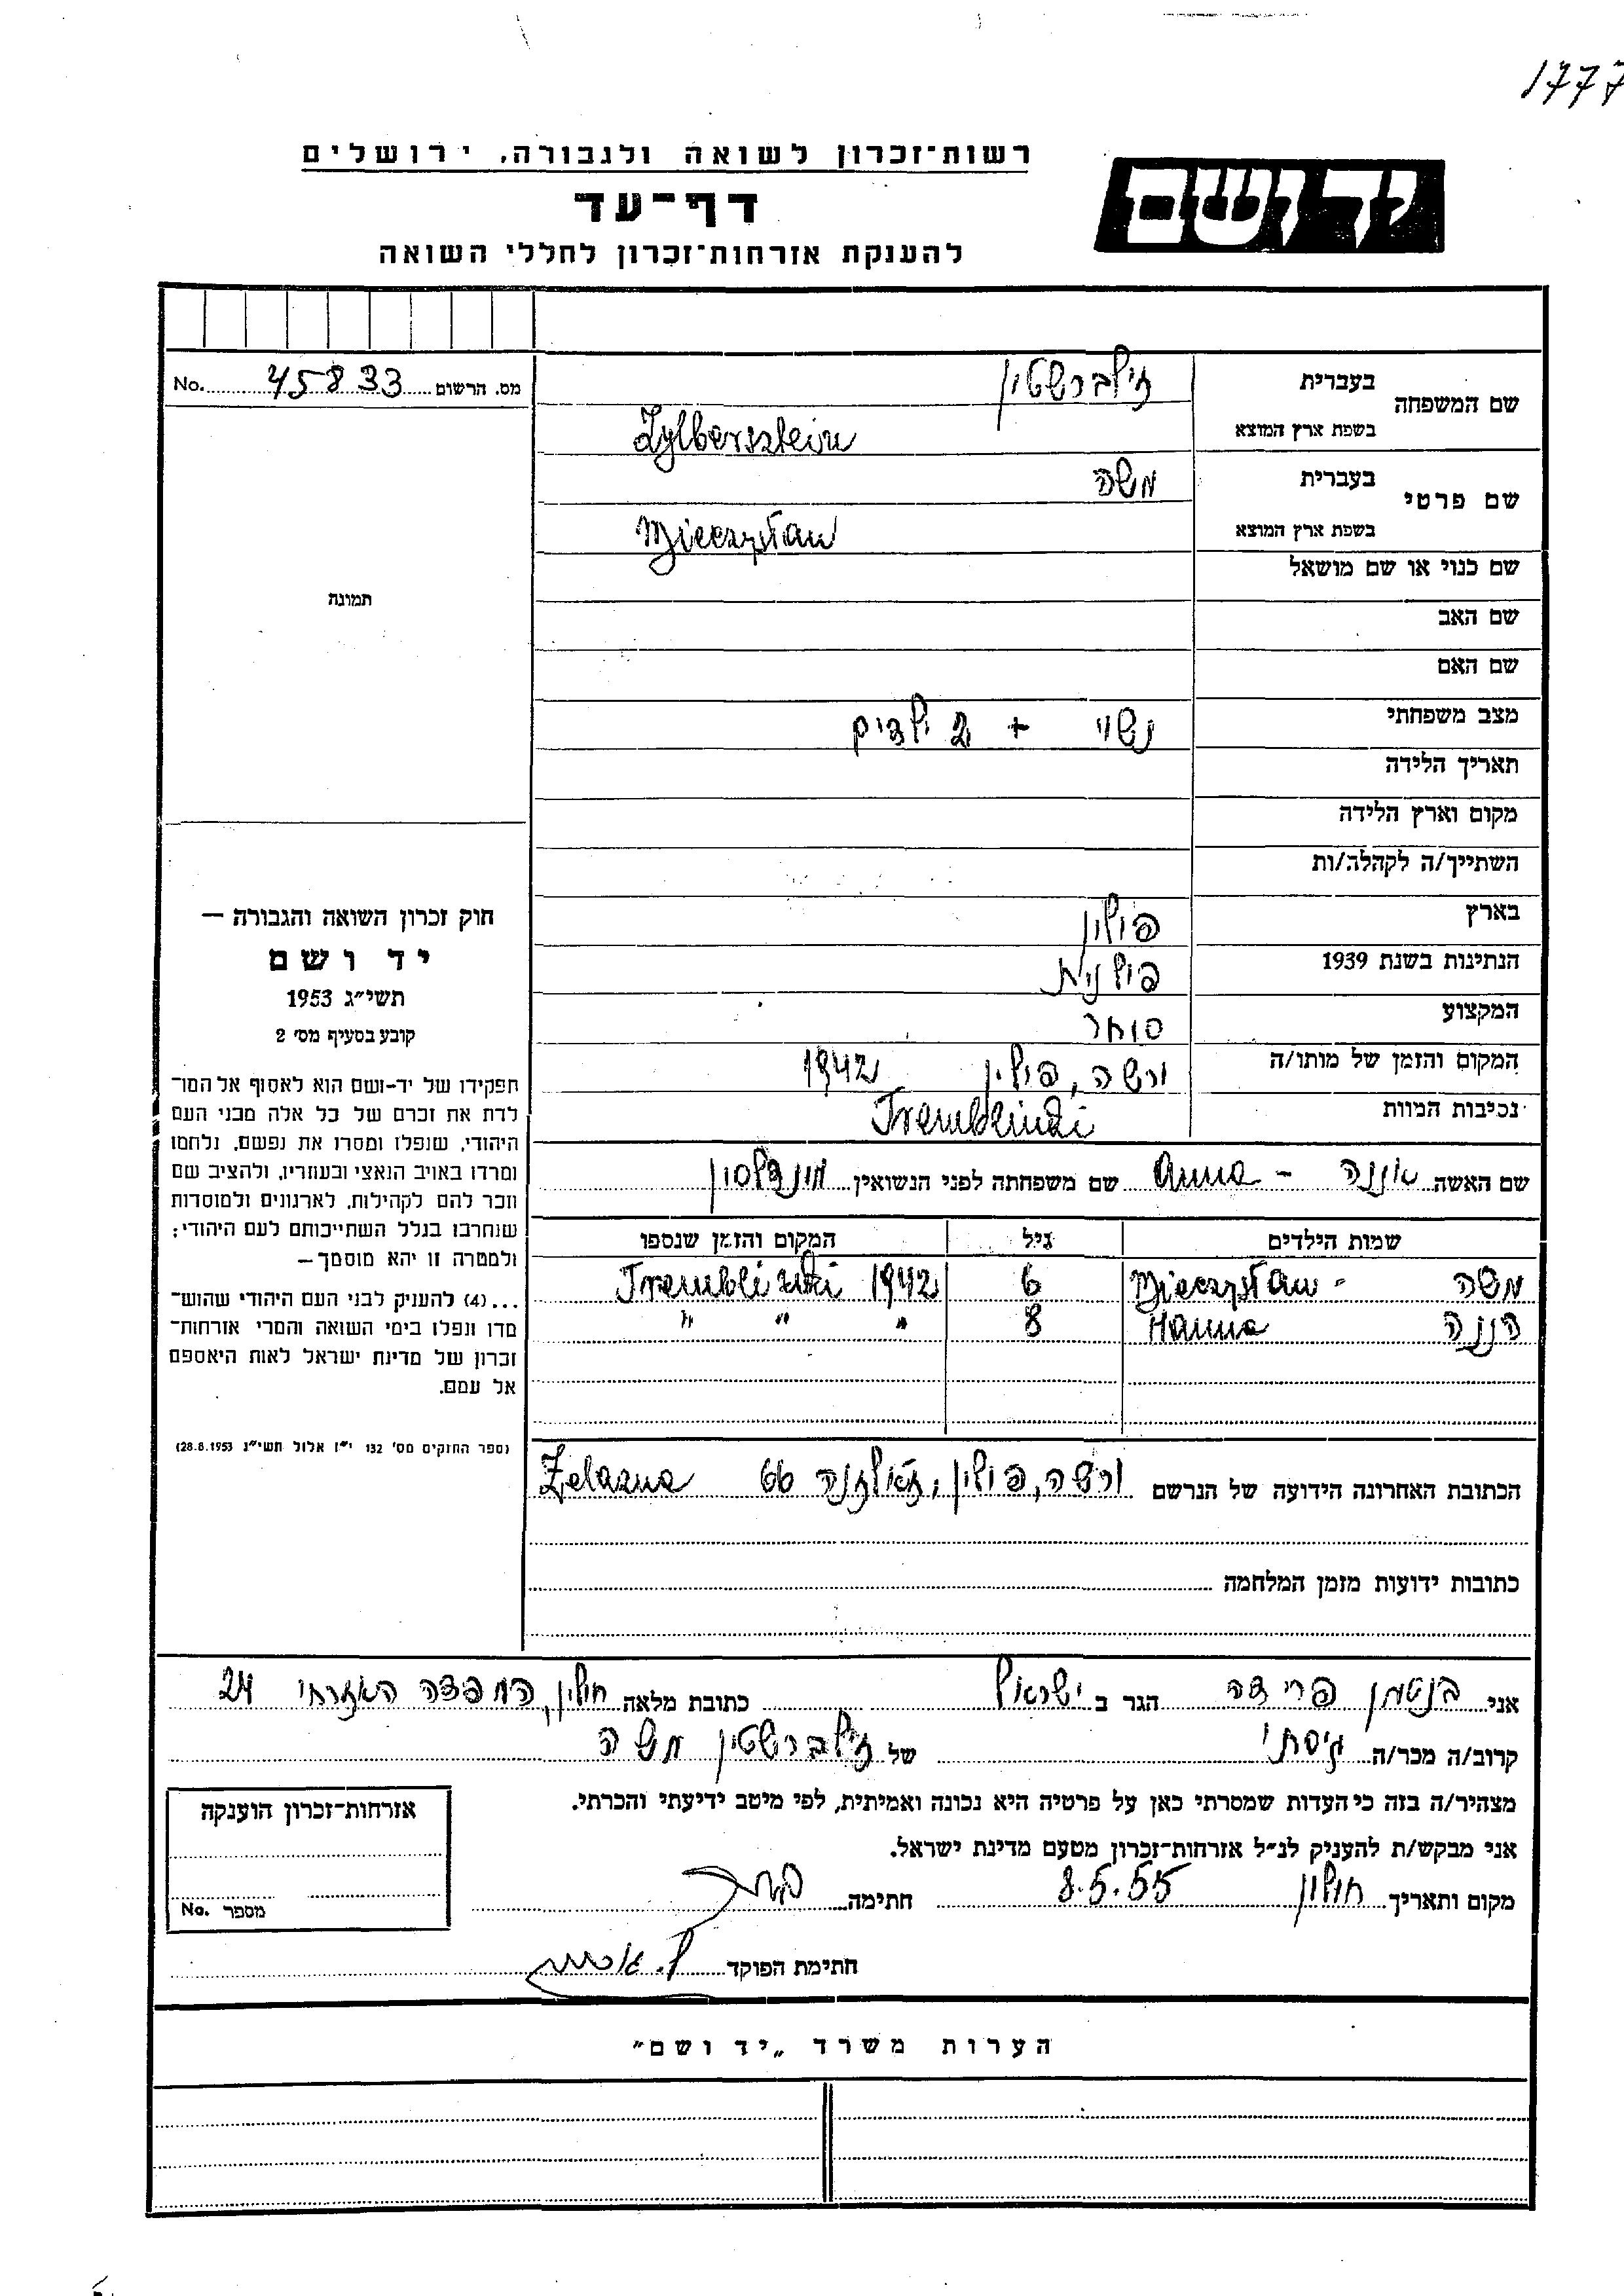 1777
רשות־זכרון לשואה ולגבורה, ירושלים
יד ושם
דף־עד
להענקת אזרחות־זכרון לחללי השואה
מס. הרשום 45833 No.
תמונה
שם המשפחה בעברית זילברשטין
בשפת ארץ המוצא Zylbersztein
שם פרטי בעברית משה
בשפת ארץ המוצא Mieczysław
שם כנוי או שם מושאל
שם האב
שם האם
מצב משפחתי נשוי + 2 ילדים
תאריך הלידה
מקום וארץ הלידה
השתייך/ה לקהלה/ות
בארץ פולין
הנתינות בשנת 1939 פולנית
המקצוע סוחר
המקום והזמן של מותו/ה ורשה, פולין 1942
נסיבות המוות Tremblinki
שם האשה אננה - Anna שם משפחתה לפני הנשואין מנדלסון
שמות הילדים גיל המקום והזמן שנספו
משה - Mieczysław 6 1942 Tremblinki
הננה Hanna 8 " " "
הכתובת האחרונה הידועה של הנרשם ורשה, פולין, זאלזנה 66 Zelazna
כתובות ידועות מזמן המלחמה
חוק זכרון השואה והגבורה —
יד ושם
תשי״ג 1953
קובע בסעיף מס׳ 2
תפקידו של יד-ושם הוא לאסוף אל המו־
לדת את זכרם של כל אלה מבני העם
היהודי, שנפלו ומסרו את נפשם, נלחמו
ומרדו באויב הנאצי ובעוזריו, ולהציב שם
וזכר להם לקהילות, לארגונים ולמוסדות
שנחרבו בגלל השתייכותם לעם היהודי;
ולמטרה זו יהא מוסמך —
...(4) להעניק לבני העם היהודי שהוש־
מדו ונפלו בימי השואה והמרי אזרחות־
זכרון של מדינת ישראל לאות היאספם
אל עמם.
(ספר החוקים מס׳ 132 י״ז אלול תשי״ג 28.8.1953)
אני בנטמן פרידה הגר ב ישראל כתובת מלאה חולון, העבודה האזרחי 24
קרוב/ה מכר/ה גיסתי של זילברשטין משה
מצהיר/ה בזה כי העדות שמסרתי כאן על פרטיה היא נכונה ואמיתית, לפי מיטב ידיעתי והכרתי.
אני מבקש/ת להעניק לנ״ל אזרחות־זכרון מטעם מדינת ישראל.
מקום ותאריך חולון 8.5.55 חתימה
חתימת הפוקד
אזרחות־זכרון הוענקה
מספר No.
הערות משרד „יד ושם״